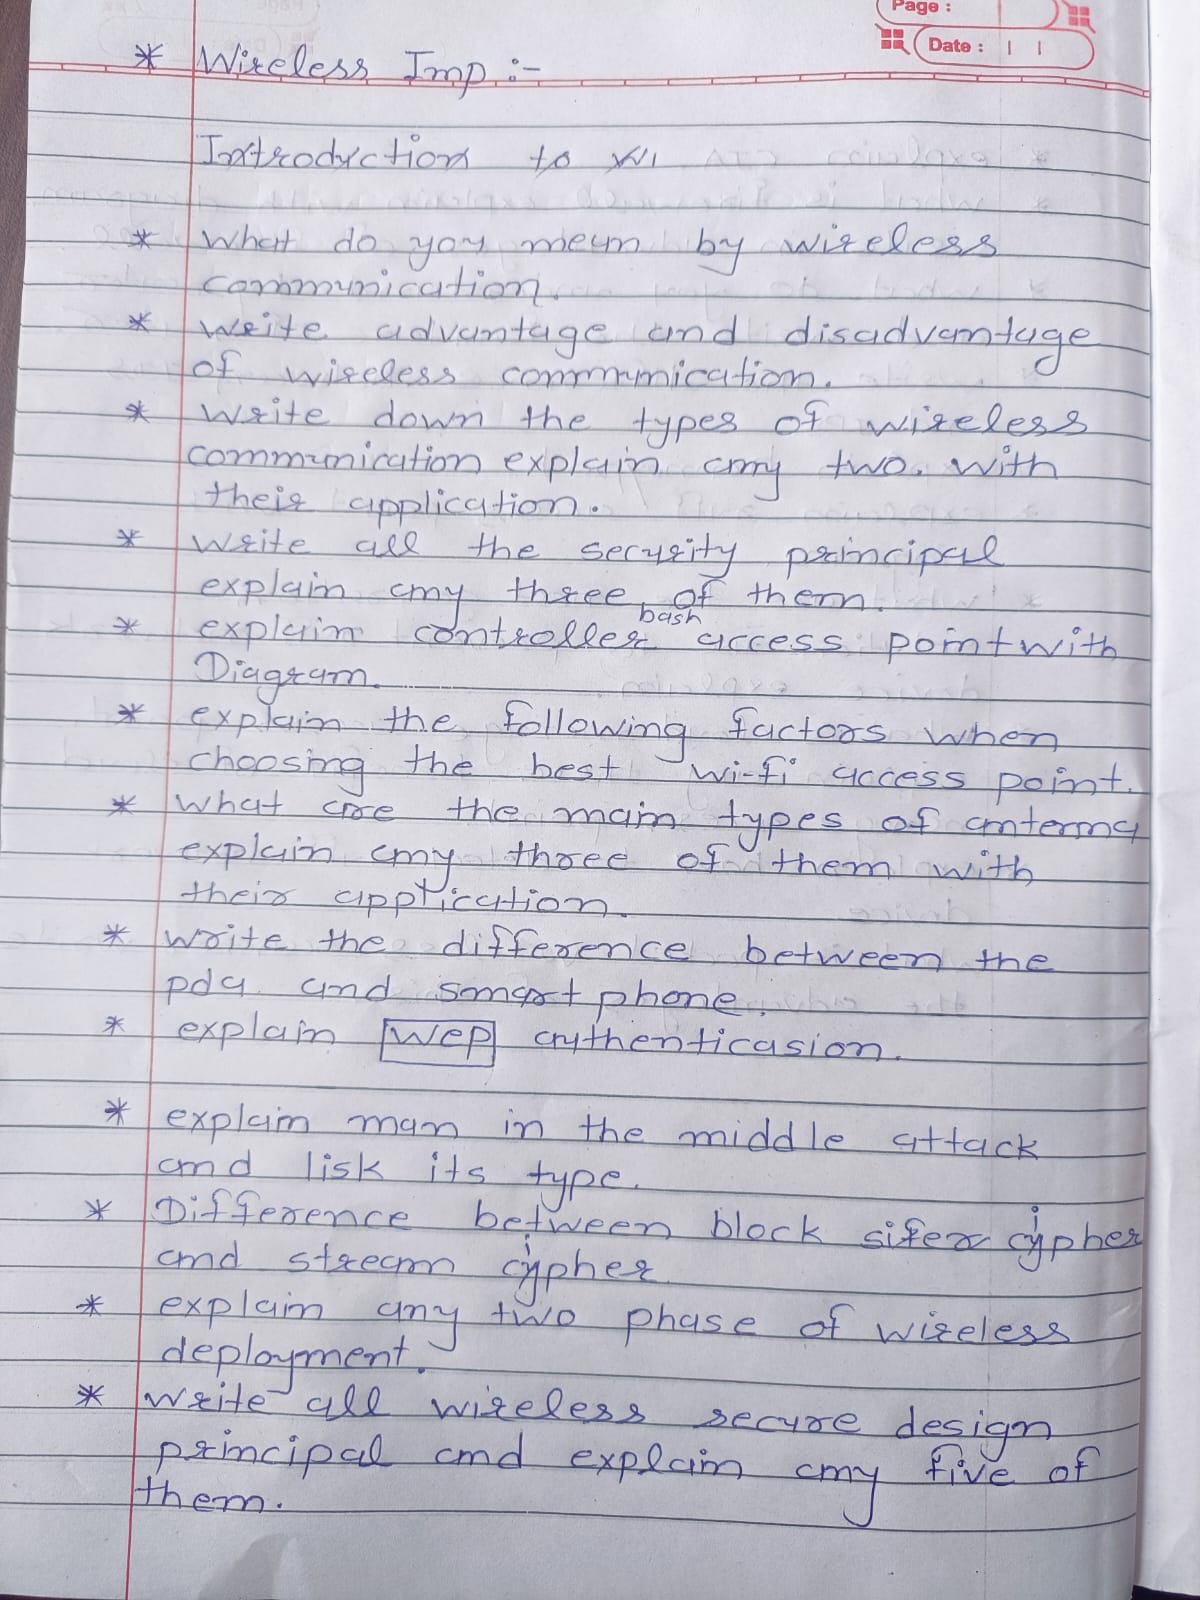 Page :
Date :
* Wireless Imp :-
Introduction to
* What do you mean by wireless
communication.
* Write advantage and disadvantage
of wireless communication.
* Write down the types of wireless
communication explain any two. with
their application.
* Write all the security principal
explain any three of them.
* explain controller bash access point with
Diagram.
* explain the following factors when
choosing the best wi-fi access point.
* What are the main types of antenna
explain any three of them with
their application.
* Write the difference between the
pda and smart phone.
* explain WEP authenticasion.
* explain man in the middle attack
and lisk its type.
* Difference between block sifer cypher
and stream cypher
* explain any two phase of wireless
deployment.
* Write all wireless secure design
principal and explain any five of
them.